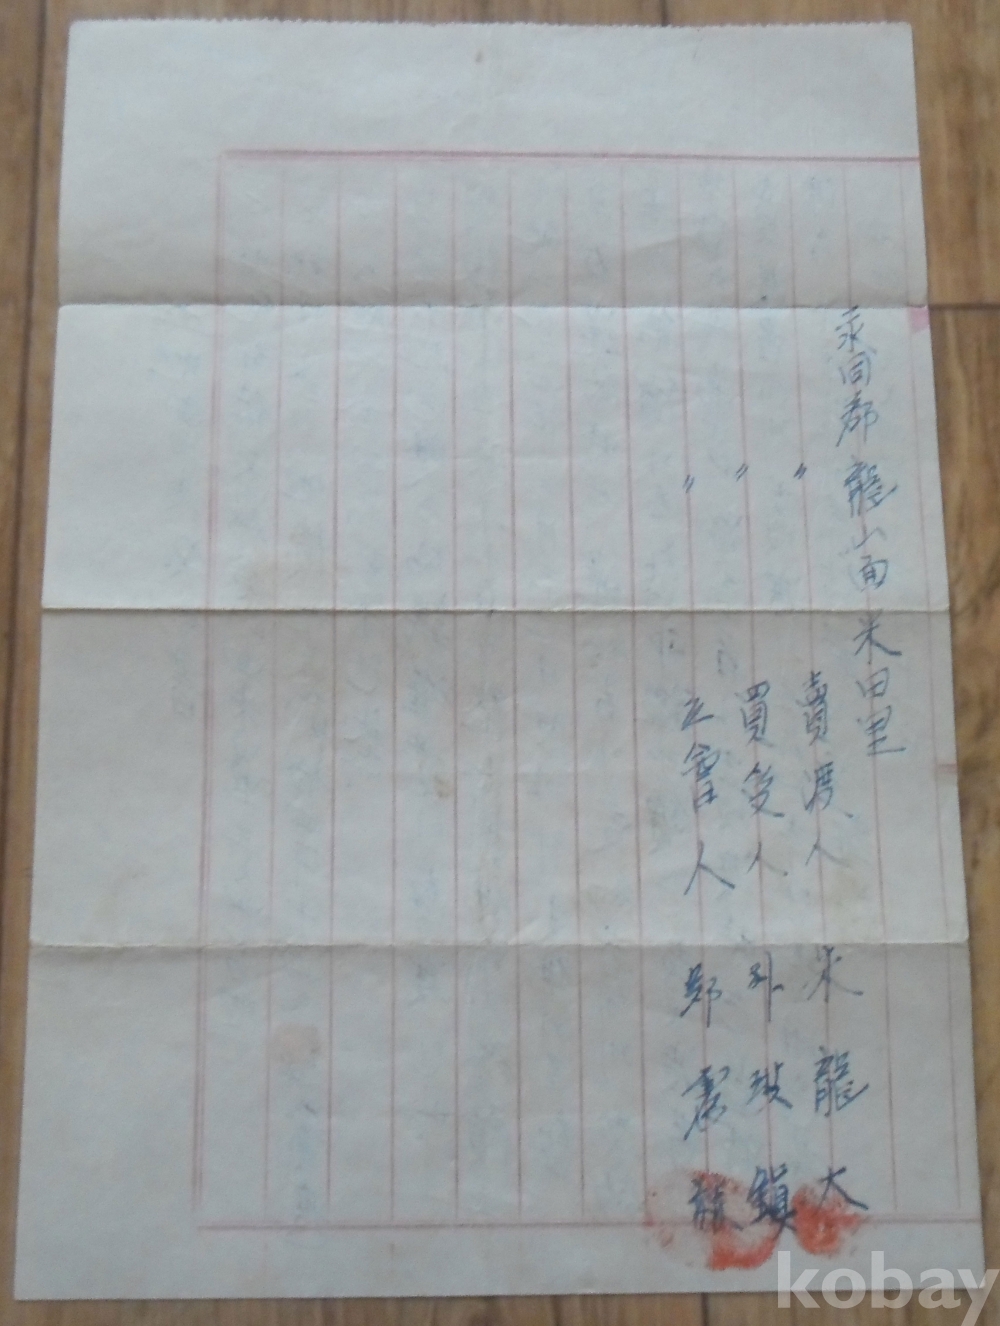 永同郡 龍山面 米田里
〃 賣渡人 宋龍大
〃 買受人 孫 鎭
〃 立會人 鄭 龍
kobay